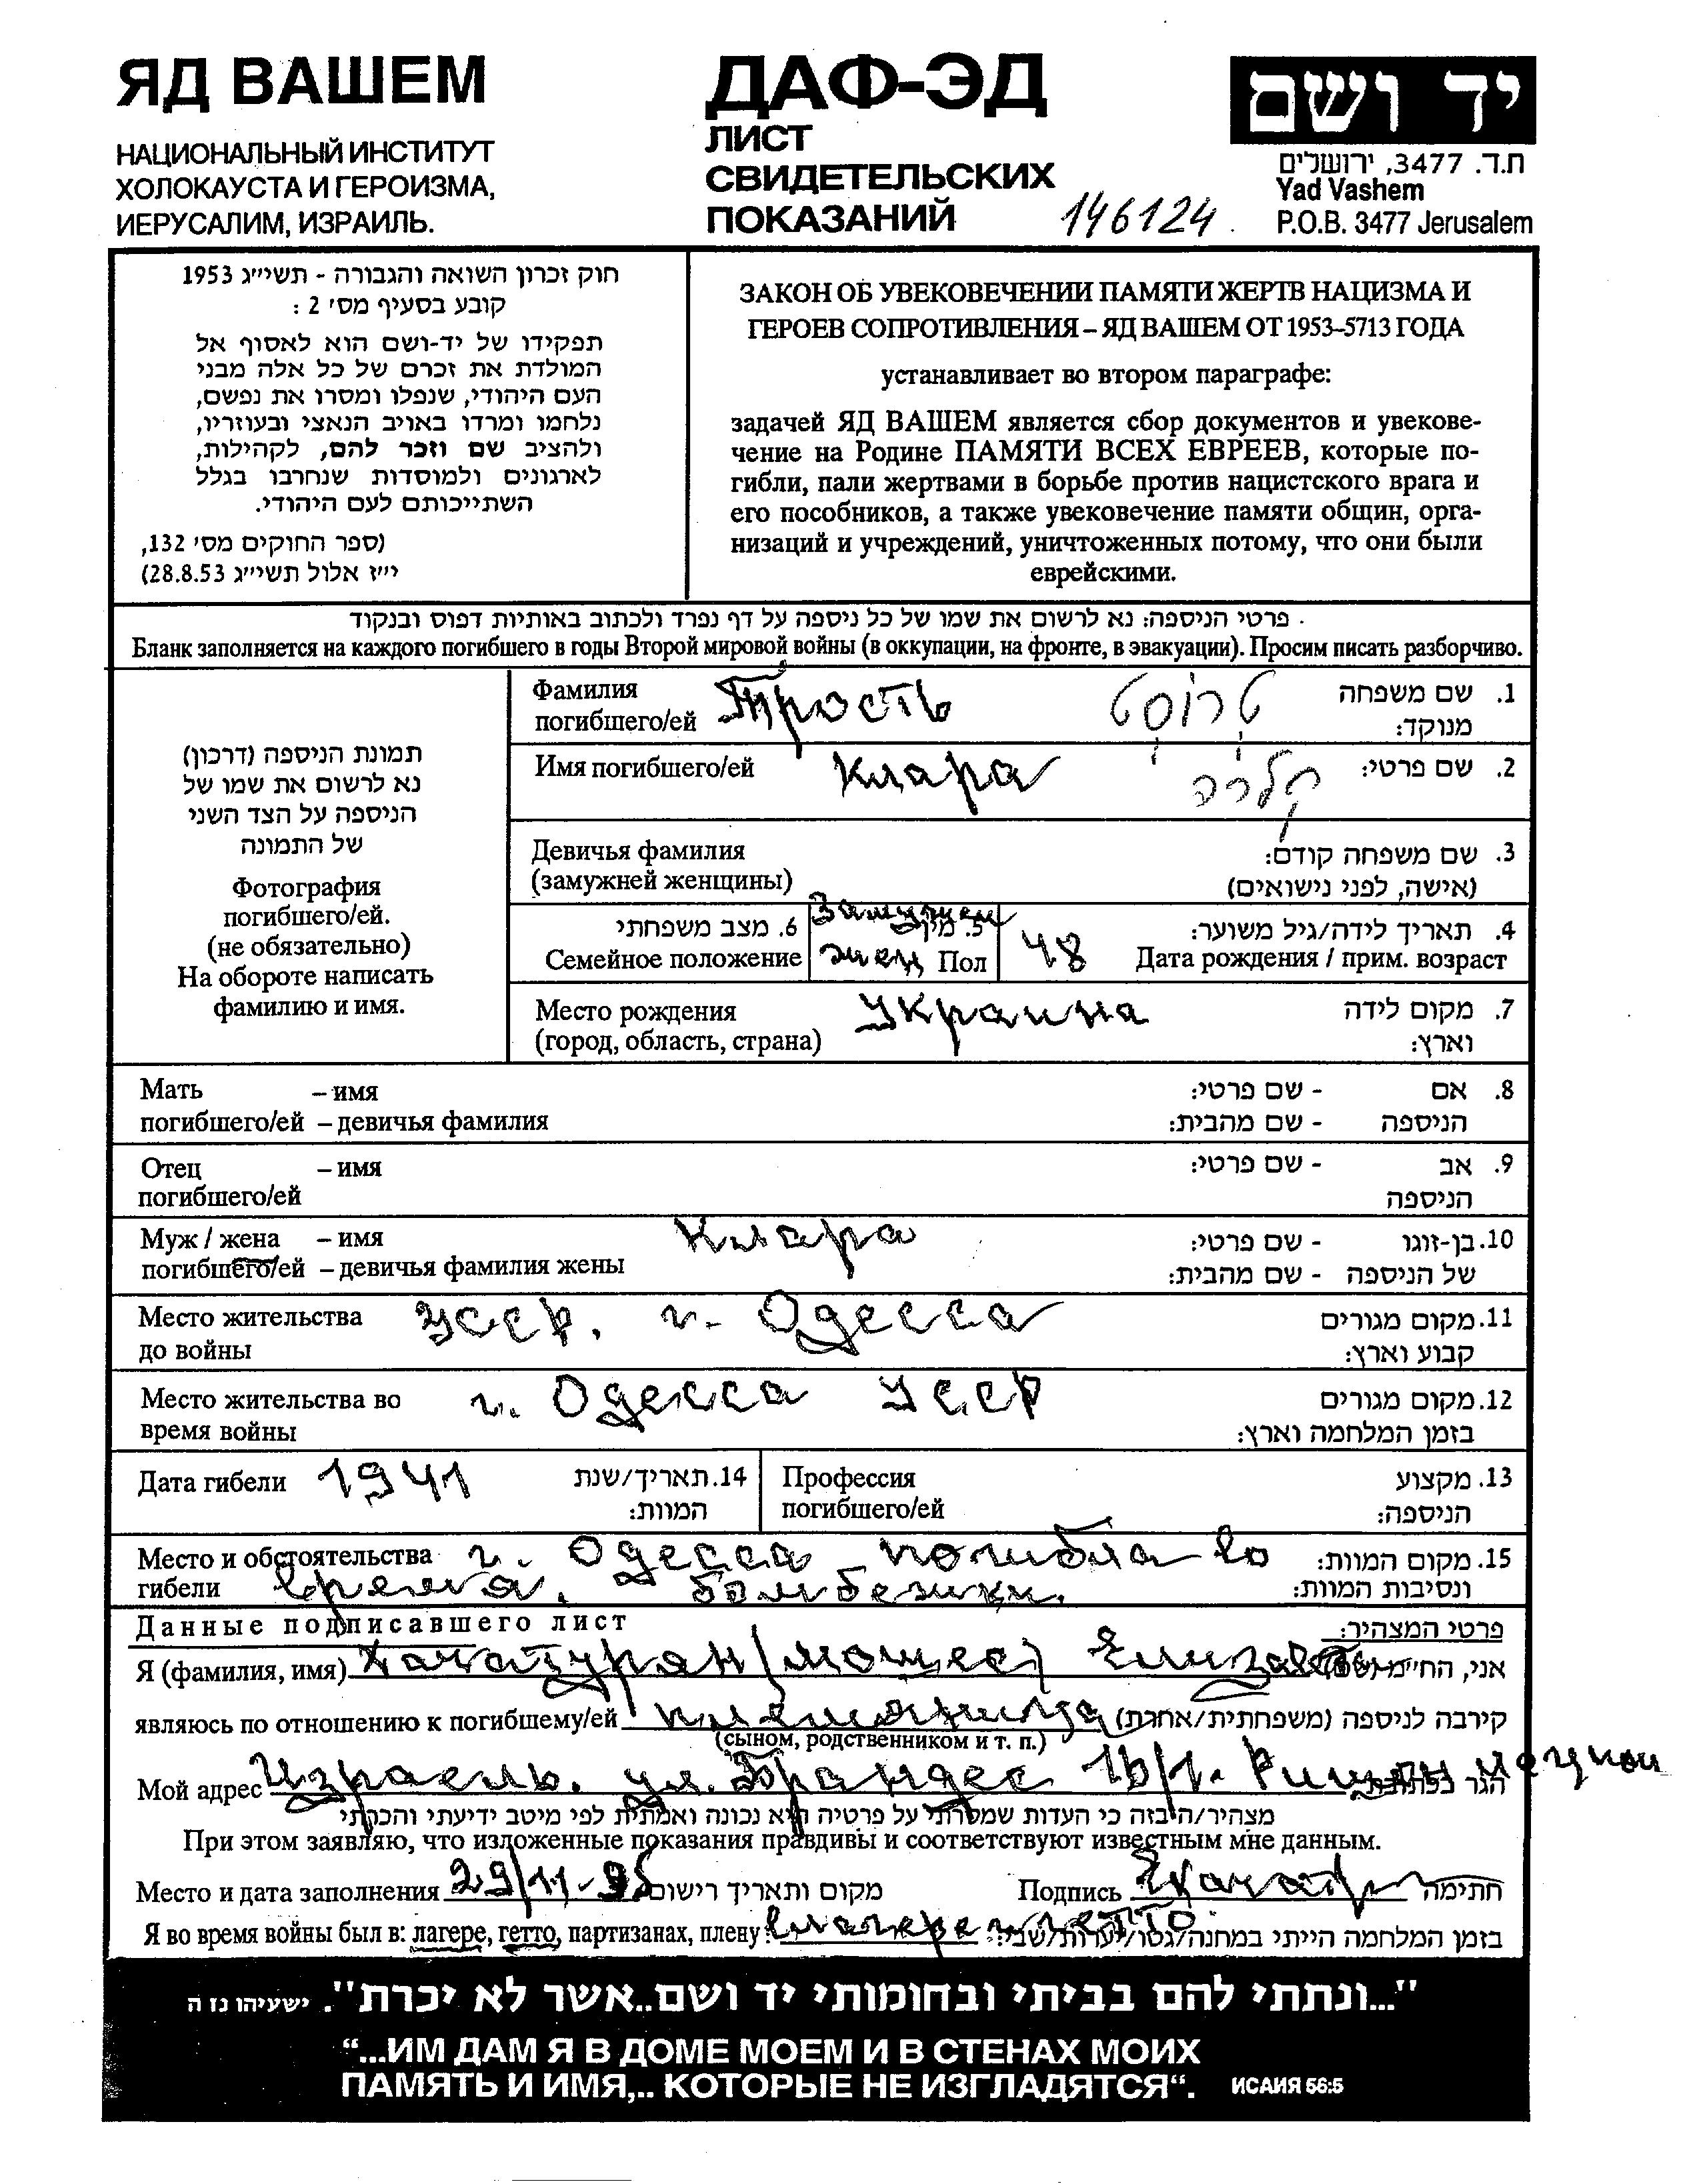 ЯД ВАШЕМ
НАЦИОНАЛЬНЫЙ ИНСТИТУТ
ХОЛОКАУСТА И ГЕРОИЗМА,
ИЕРУСАЛИМ, ИЗРАИЛЬ.
ДАФ-ЭД
ЛИСТ
СВИДЕТЕЛЬСКИХ
ПОКАЗАНИЙ 146124
יד ושם
ת.ד. 3477, ירושלים
Yad Vashem
P.O.B. 3477 Jerusalem
חוק זכרון השואה והגבורה - תשי״ג 1953
קובע בסעיף מס׳ 2 :
תפקידו של יד-ושם הוא לאסוף אל
המולדת את זכרם של כל אלה מבני
העם היהודי, שנפלו ומסרו את נפשם,
נלחמו ומרדו באויב הנאצי ובעוזריו,
ולהציב שם וזכר להם, לקהילות,
לארגונים ולמוסדות שנחרבו בגלל
השתייכותם לעם היהודי.
(ספר החוקים מס׳ 132,
י״ז אלול תשי״ג 28.8.53)
ЗАКОН ОБ УВЕКОВЕЧЕНИИ ПАМЯТИ ЖЕРТВ НАЦИЗМА И
ГЕРОЕВ СОПРОТИВЛЕНИЯ – ЯД ВАШЕМ ОТ 1953–5713 ГОДА
устанавливает во втором параграфе:
задачей ЯД ВАШЕМ является сбор документов и увекове-
чение на Родине ПАМЯТИ ВСЕХ ЕВРЕЕВ, которые по-
гибли, пали жертвами в борьбе против нацистского врага и
его пособников, а также увековечение памяти общин, орга-
низаций и учреждений, уничтоженных потому, что они были
еврейскими.
פרטי הניספה: נא לרשום את שמו של כל ניספה על דף נפרד ולכתוב באותיות דפוס ובנקוד
Бланк заполняется на каждого погибшего в годы Второй мировой войны (в оккупации, на фронте, в эвакуации). Просим писать разборчиво.
תמונת הניספה (דרכון)
נא לרשום את שמו של
הניספה על הצד השני
של התמונה
Фотография
погибшего/ей.
(не обязательно)
На обороте написать
фамилию и имя.
Фамилия
погибшего/ей Трость טרוסט
1. שם משפחה
מנוקד:
Имя погибшего/ей Клара קלרה 2. שם פרטי:
Девичья фамилия
(замужней женщины)
3. שם משפחה קודם:
(אישה, לפני נישואים)
6. מצב משפחתי
Семейное положение
Замужем
5. מין
жен Пол
48
4. תאריך לידה/גיל משוער:
Дата рождения / прим. возраст
Место рождения
(город, область, страна) Украина
7. מקום לידה
וארץ:
Мать – имя
погибшего/ей – девичья фамилия
8. אם - שם פרטי:
הניספה - שם מהבית:
Отец – имя
погибшего/ей
9. אב - שם פרטי:
הניספה
Муж / жена – имя Клара
погибшего/ей – девичья фамилия жены
10. בן-זוגו - שם פרטי:
של הניספה - שם מהבית:
Место жительства
до войны УССР. г. Одесса
11. מקום מגורים
קבוע וארץ:
Место жительства во
время войны г. Одесса УССР
12. מקום מגורים
בזמן המלחמה וארץ:
Дата гибели 1941
14. תאריך/שנת
המוות:
Профессия
погибшего/ей
13. מקצוע
הניספה:
Место и обстоятельства г. Одесса погибла во
гибели время. бомбежки.
15. מקום המוות:
ונסיבות המוות:
Данные подписавшего лист פרטי המצהיר:
Я (фамилия, имя) Хачатурян (Мошес) Елизавета אני, הח״מ
являюсь по отношению к погибшему/ей племянница קירבה לניספה (משפחתית/אחרת)
(сыном, родственником и т. п.)
Мой адрес Израель. ул. Брандес 16/1. Ришон лецион הגר
מצהיר/ה בזה כי העדות שמסרתי על פרטיה היא נכונה ואמתית לפי מיטב ידיעתי והכרתי
При этом заявляю, что изложенные показания правдивы и соответствуют известным мне данным.
Место и дата заполнения 29/11-95 מקום ותאריך רישום Подпись חתימה
Я во время войны был в: лагере, гетто, партизанах, плену в лагере гетто בזמן המלחמה הייתי במחנה/גטו/יערות/שבי:
"...ונתתי להם בביתי ובחומותי יד ושם..אשר לא יכרת". ישעיהו נז ה
“...ИМ ДАМ Я В ДОМЕ МОЕМ И В СТЕНАХ МОИХ
ПАМЯТЬ И ИМЯ,.. КОТОРЫЕ НЕ ИЗГЛАДЯТСЯ“. ИСАИЯ 56:5